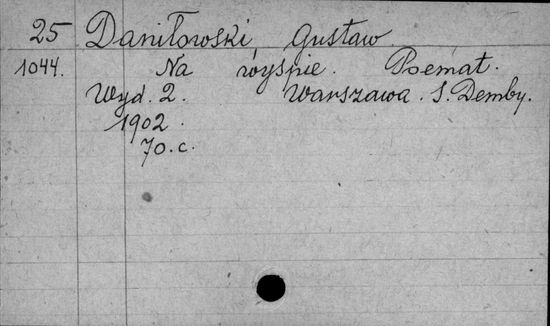 25 Daniłowski Gustaw
1044. Na wyspie. Poemat.
Wyd. 2. Warszawa. S. Demby.
1902.
70. c.